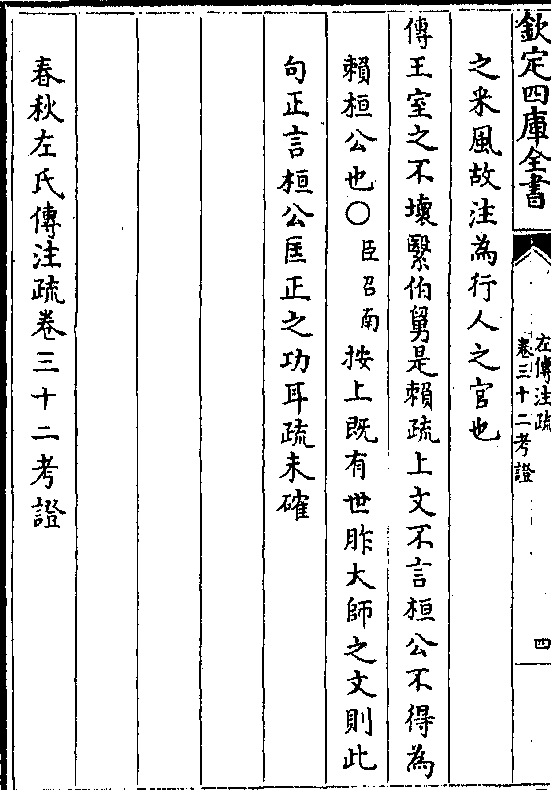 欽定四庫全書
左傳注疏
卷三十二考證
四
之采風故注為行人之官也
傳王室之不壞繄伯舅是賴疏上文不言桓公不得為
賴桓公也〇臣召南按上既有世胙大師之文則此
句正言桓公匡正之功耳疏未確
春秋左氏傳注疏卷三十二考證